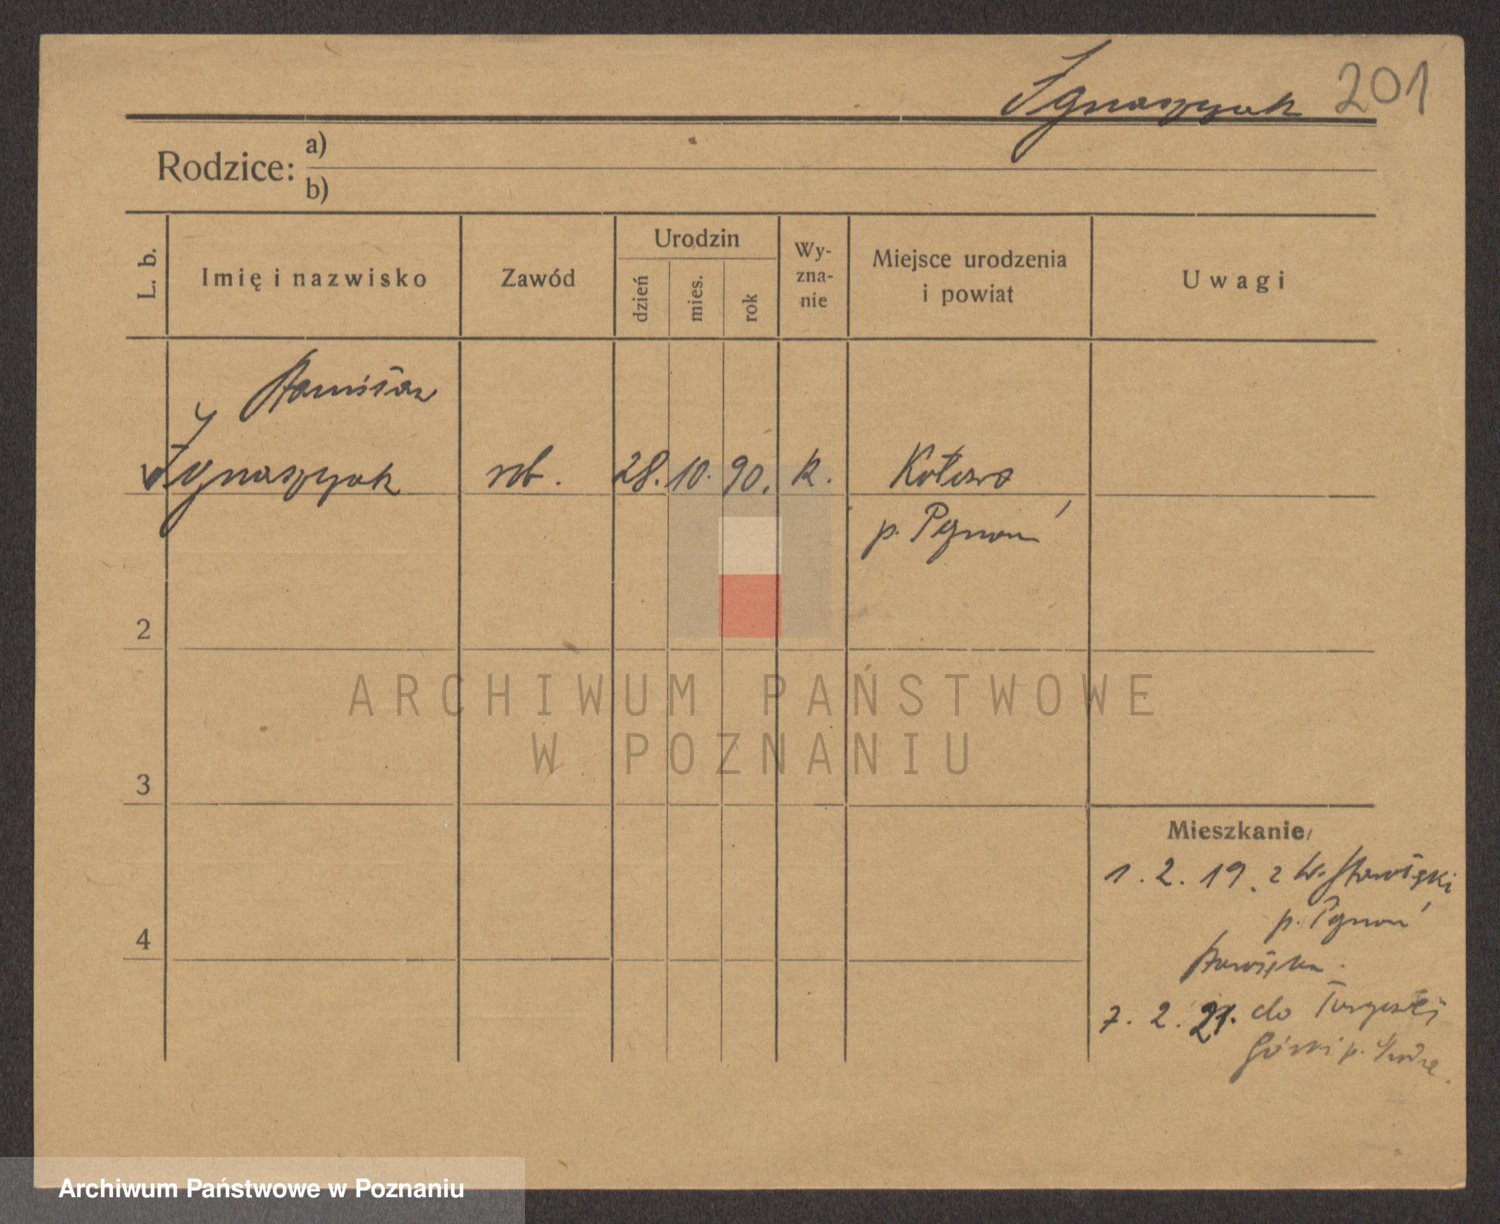 Ignaszyak 201
Rodzice: a)
b)
L. b.
Imię i nazwisko
Zawód
Urodzin
dzień
mies.
rok
Wy-
zna-
nie
Miejsce urodzenia
i powiat
Uwagi
Stanisław
Ignaszyak rob. 28. 10. 90. k. Kotowo
p. Poznań
2
3
4
Mieszkanie
1. 2. 19. z
p. Poznań
7. 2. 21. do
Górki p.
ARCHIWUM PAŃSTWOWE
W POZNANIU
Archiwum Państwowe w Poznaniu